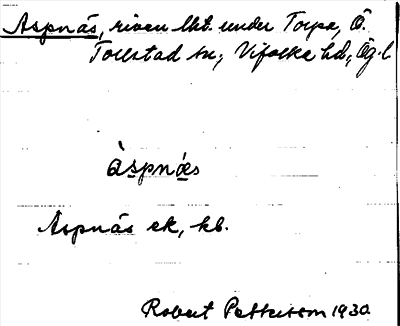 Aspnäs, riven lht. under Torpa, Ö.
Tollstad sn; Vifolka hd; Ög. l
àspnǽs
Aspnäs ek, kb.
Robert Pettersson 1930